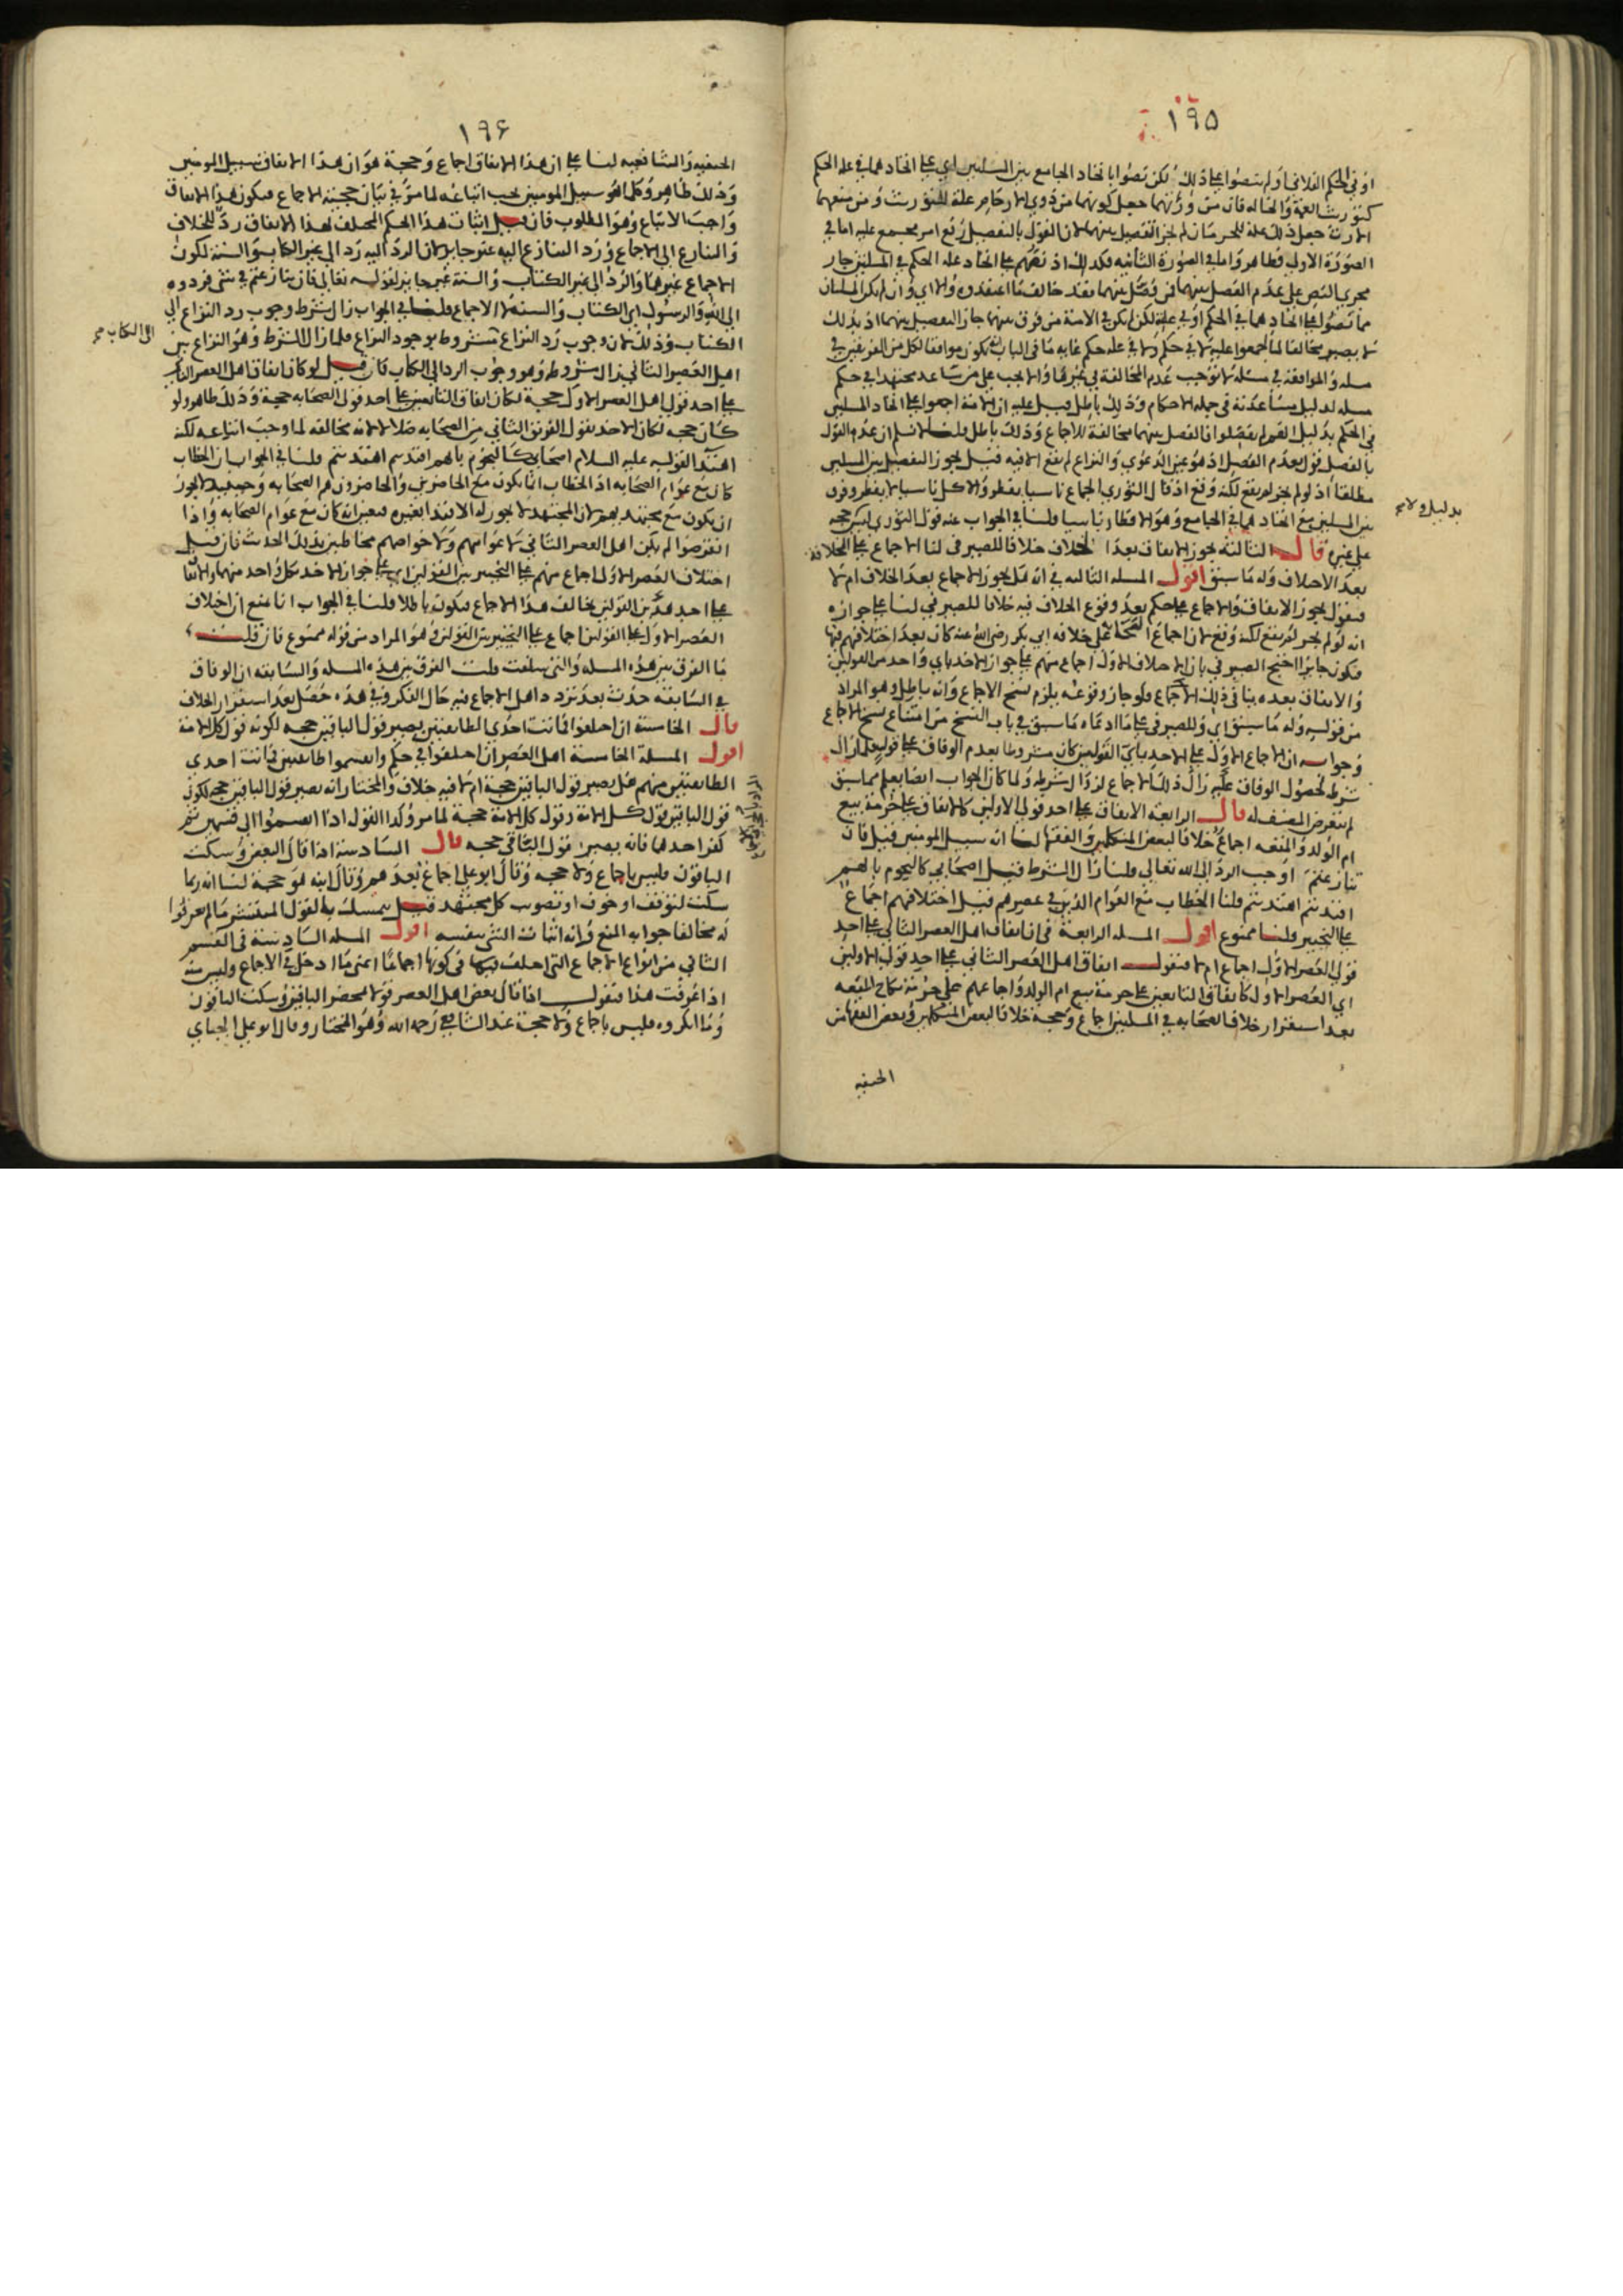 ١٩٥
او في الحكم الفلاني او لم ينصوا على ذلك لكن نصوا باتحاد الجامع بين المسلتين اي على اتحادهما في علة الحكم
كتوريث العمة والخالة فان من ورثهما جعل كونهما من ذوي الارحام علة للتوريث ومن منعهما
الارث جعل ذلك علة للحرمان لم يجز التفصيل بينهما لان القول بالتفصيل رفع امر مجمع عليه اما في
الصورة الاولى فظاهر واما في الصورة الثانيه فكذلك اذ نصهم على اتحاد علة الحكم في المسلتين جار
مجرى النص على عدم الفصل بينهما فمن فصل بينهما فقد خالف ما اعتقدوه والا اي وان لم يكن المسلتان
مما نصوا على اتحادهما في الحكم او في علة لكن لم يكن في الامة من فرق بينهما جاز التفصيل بينهما اذ بذلك
لا يصير مخالفا لما اجمعوا عليه لا في حكم ولا في علة حكم غايه ما في الباب انه يكون موافقا لكل من الفريقين في
مسله والموافقة في مسله لا توجب عدم المخالفة في غيرها والا يجب على من ساعد مجتهدا في حكم
مسله لدليل مساعدته في جملة الاحكام وذلك باطل قيل عليه ان الامة اجمعوا على اتحاد المسلتين
في الحكم بدليل انهم لم يفصلوا فالفصل بينهما مخالفة للاجماع وذلك باطل قلنا لا نسلم ان عدم القول
بالفصل قول بعدم الفصل اذ هو عين الدعوى والنزاع لم يقع الا فيه قيل يجوز التفصيل بين المسلتين
مطلقا اذ لو لم يجز لم يقع لكنه وقع اذ قال الثوري الجماع ناسيا يفطر والاكل ناسيا لا يفطر وفرق
بدليل ولا
بين المسلتين مع اتحادهما في الجامع وهو الافطار ناسيا قلنا في الجواب عنه قول الثوري ليس حجه
على غيره قال الثالثة يجوز الاتفاق بعد الخلاف خلافا للصيرفي لنا الاجماع على الخلافة
بعد الاختلاف وله ما سبق اقول المسله الثالثه في انه هل يجوز الاجماع بعد الخلاف ام لا
فنقول يجوز الاتفاق والاجماع على حكم بعد وقوع الخلاف فيه خلافا للصيرفي لنا على جوازه
انه لو لم يجز لم يقع لكنه وقع لان اجماع الصحابة على خلافه ابي بكر رضي الله عنه كان بعد اختلافهم فيها
فيكون جايزا احتج الصيرفي بان الاختلاف الاول اجماع منهم على جواز الاخذ باي واحد من القولين
والاتفاق بعده ينافي ذلك الاجماع فلو جاز وقوعه يلزم نسخ الاجماع وانه باطل وهو المراد
من قوله وله ما سبق اي وللصيرفي على ما ادعاه ما سبق في باب النسخ من امتناع نسخ الاجماع
وجوابه ان الاجماع الاول على الاخذ باي القولين كان مشروطا بعدم الوفاق على قول فلما زال
شرطه لحصول الوفاق عليه زال ذلك الاجماع لزوال شرطه ولما كان الجواب ايضا يعلم مما سبق
لم يتعرض المصنف له قال الرابعة الاتفاق على احد قولي الاولين كالاتفاق على حرمة بيع
ام الولد والمتعه اجماع خلافا لبعض المتكلمين والفقها لنا انه سبيل المومنين قيل فان
تنازعتم اوجب الرد الى الله تعالى قلنا زال الشرط قيل اصحابي كالنجوم بايهم
اقتديتم اهتديتم قلنا الخطاب مع العوام الذين في عصرهم قيل اختلافهم اجماع
على التخيير قلنا ممنوع اقول المسله الرابعة في ان اتفاق اهل العصر الثاني على احد
قولي العصر الاول اجماع ام لا فنقول اتفاق اهل العصر الثاني على احد قولي الاولين
اي العصر الاول كاتفاق التابعين على حرمة بيع ام الولد واجماعهم على حرمة نكاح المتعه
بعد استقرار خلاف الصحابه في المسلتين اجماع وحجة خلافا لبعض المتكلمين وبعض الفقها من
الحنفيه
١٩۶
الحنفيه والشافعيه لنا على ان هذا الاتفاق اجماع وحجة هو ان هذا الاتفاق سبيل المومنين
وذلك ظاهر وكل ما هو سبيل المومنين يجب اتباعه لما مر في بيان حجية الاجماع فيكون هذا الاتفاق
واجب الاتباع وهو المطلوب فان قيل اثبات هذا الحكم المختلف بهذا الاتفاق رد للخلاف
والتنازع الى الاجماع ورد المتنازع اليه غير جايز لان الرد اليه رد الى غير الكتاب والسنة لكون
الاجماع غيرهما والرد الى غير الكتاب والسنة غير جايز لقوله تعالى فان تنازعتم في شي فردوه
الى الله والرسول اي الكتاب والسنة لا الاجماع قلنا في الجواب زال شرط وجوب رد النزاع الى
الكتاب وذلك لان وجوب رد النزاع مشروط بوجود النزاع فلما زال الشرط وهو النزاع بين
الى الكتاب
اهل العصر الثاني زال مشروطه وهو وجوب الرد الى الكتاب فان قيل لو كان اتفاق اهل العصر الثاني
على احد قولي اهل العصر الاول حجية لكان اتفاق التابعين على احد قولي الصحابه حجية وذلك ظاهر ولو
كان حجه لكان الاخذ بقول الفريق الثاني من الصحابه ضلالا لانه مخالفه لما وجب اتباعه لكنه
اهتدا لقوله عليه السلام اصحابي كالنجوم بايهم اقتديتم اهتديتم قلنا في الجواب ان الخطاب
كان مع عوام الصحابه اذ الخطاب انما يكون مع الحاضرين والحاضرون هم الصحابه وحينيذ لا يجوز
ان يكون مع مجتهديهم لان المجتهد لا يجوز له الاقتدا بغيره فتعين انه كان مع عوام الصحابه واذا
انقرضوا لم يكن اهل العصر الثاني لا عوامهم ولا خواصهم مخاطبين بذلك الحديث فان قيل
اختلاف العصر الاول اجماع منهم على التخيير بين القولين اي على جواز الاخذ بكل واحد منهما والاتفاق
على احد هذين القولين يخالف هذا الاجماع فيكون باطلا قلنا في الجواب انا نمنع ان اختلاف
العصر الاول على القولين اجماع على التخيير بين القولين وهو المراد من قوله ممنوع فان قلت
ما الفرق بين هذه المسله والتي سلفت قلت الفرق بين هذه المسله والسابقه ان الوفاق
في السابقه حدث بعد تردد اهل الاجماع في حال التفكر وفي هذه حصل بعد استقرار الخلاف
قال الخامسة ان اختلفوا فماتت احدى الطايفتين يصير قول الباقين حجه لكونه قول كل الامة
اقول المسلة الخامسة اهل العصر ان اختلفوا في حكم وانقسموا طايفتين فماتت احدى
الطايفتين منهم هل يصير قول الباقين حجة ام لا فيه خلاف والمختار انه يصير قول الباقين حجه لكون
قول الباقين قول كل الامة وقول كل الامة حجية لما مر وكذا القول اذا انقسموا الى قسمين ثم
كفر احدهما فانه يصير قول الباقي حجه قال السادسة اذا قال البعض وسكت
الباقون فليس باجماع ولا حجه وقال ابو علي اجماع بعدهم وقال ابنه هو حجة لنا انه ربما
سكت لتوقف او خوف او تصويب كل مجتهد قيل يتمسك بالقول المنتشر ما لم يعرفوا
له مخالفا جوابه المنع وانه اثبات الشي بنفسه اقول المسله السادسة في القسم
الثاني من انواع الاجماع التي اختلف فيها في كونها اجماعا اعني ما ادخل في الاجماع وليس منه
اذا عرفت هذا فنقول اذا قال بعض اهل العصر قولا بمحضر الباقين وسكت الباقون
وما انكروه فليس باجماع ولا حجة عند الشافعي رحمه الله وهو المختار وقال ابو علي الجباي